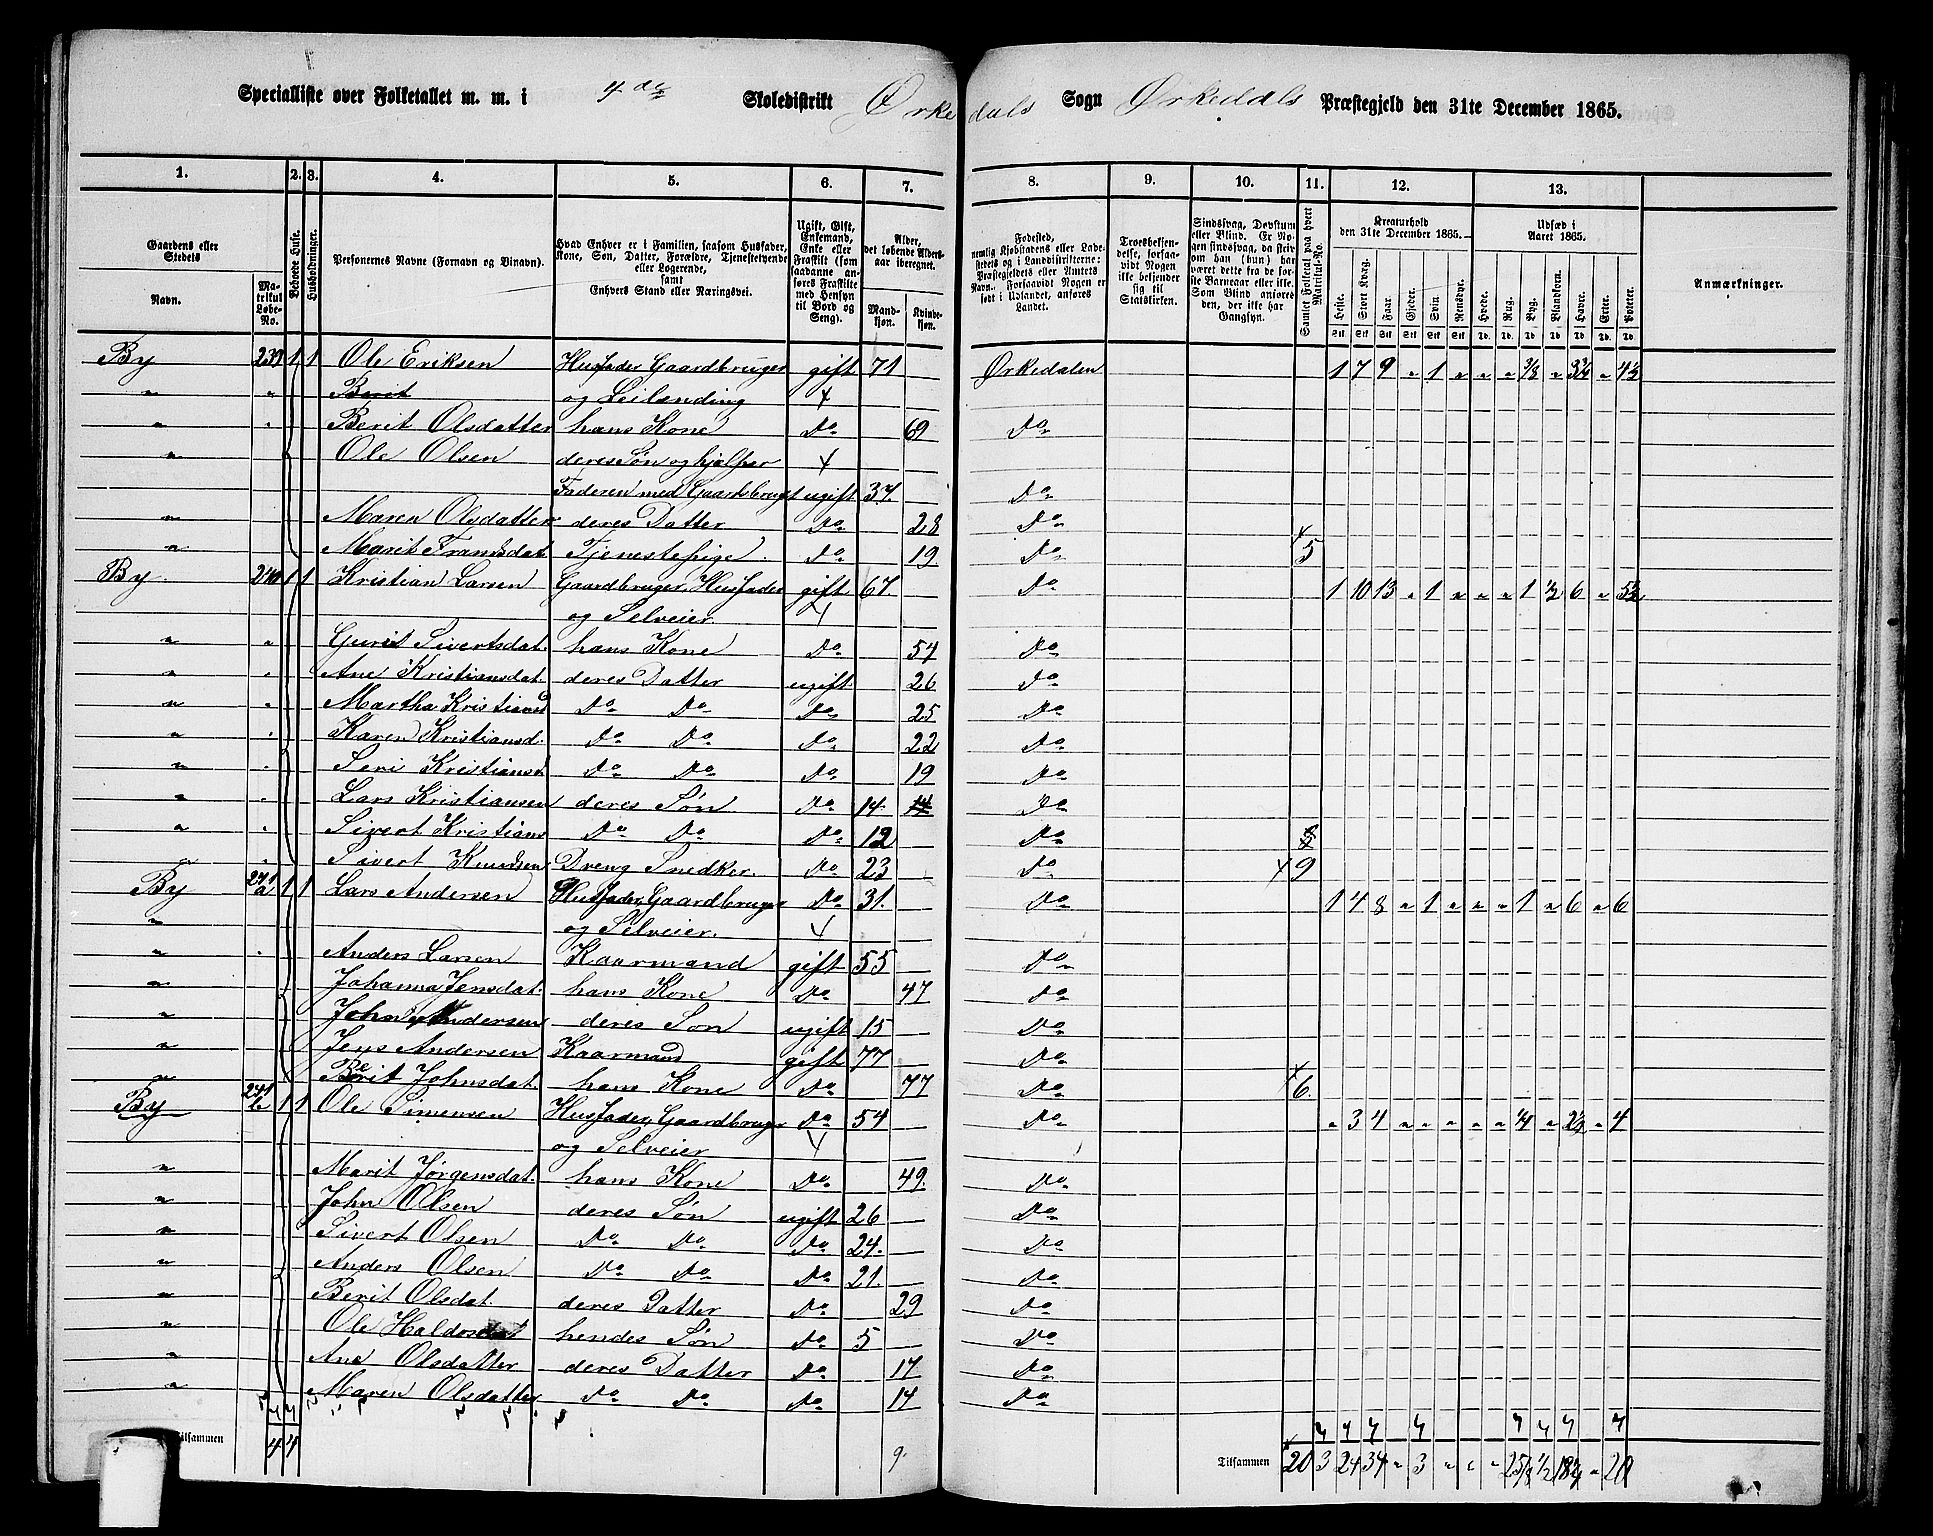 Specialliste over Folketallet m. m. i 4de Skoledistrikt Ørkedals Sogn Ørkedals Præstegjeld den 31te December 1865.
1. 2. 3. 4. 5. 6. 7. 8. 9. 10. 11. 12. 13.
Gaardens eller Stedets
Navn.
Matrikul Løbe-No.
Beboede Huse.
Husholdninger.
Personernes Navne (Fornavn og Tilnavn).
Hvad Enhver er i Familien, saasom Husfader, Kone, Søn, Datter, Forældre, Tjenestetyende eller Logerende, samt Enhvers Stand eller Næringsvei.
Ugift, Gift, Enkemand, Enke eller Fraskilt (som saadanne anføres Fraskilte med Hensyn til Bord og Seng).
Alder, det løbende Aldersaar iberegnet.
Mandkjøn. Kvindekjøn.
Fødested, nemlig Kjøbstadens eller Ladestedets og i Landdistrikterne: Præstegjeldets eller Amtets Navn. Forsaavidt Nogen er født i Udlandet, anføres Landet.
Troesbekjendelse, forsaavidt Nogen ikke bekjender sig til Statskirken.
Sindssvag, Døvstum eller Blind. Er Nogen sindssvag, da skrives om han (hun) har været dette fra de første Barneaar eller ikke. Som Blind anføres den, der ikke har Gangsyn.
Samlet Folketal paa hvert Matrikul-No.
Kreaturhold den 31te December 1865.
Heste. Stort Kvæg. Faar. Gjeder. Svin. Rensdyr.
Udsæd i Aaret 1865.
Hvede. Rug. Byg. Blandkorn. Havre. Erter. Poteter.
Anmærkninger.
By 239 1 1 Ole Eriksen Husfader Gaardbruger gift 71 Ørkedalen 1 7 9 " 1 " " "
" " Berit og Leilænding
" " Berit Olsdatter hans Kone Do 69 Do
" Ole Olsen deres Søn og hjelper
Faderen med Gaardsbruget ugift 37. Do
" Maren Olsdatter deres Datter Do 28 Do
" Marit Fransdat Tjenestepige. Do 19 Do 5
By 240 1 1 Kristian Larsen Gaardbruger, Husfader gift 67. Do 1 10 13 " 1 " " " 1 1/2 6 "
og Selveier.
" " Gurit Sivertsdat. hans Kone Do 57 Do
" " Ane Kristiansdat. deres Datter ugift. 26 Do
" " Martha Kristiansd Do Do Do 25 Do
" " Karen Kristiansd. Do Do Do 22 Do
" " Seri Kristiansd. Do Do Do 19 Do
" " Lars Kristiansen deres Søn Do 14. 14 Do
" " Sivert Kristians Do Do Do 12 Do
" " Sivert Knudsen Dreng Snedker. Do 23 Do 9
By 241 a 1 1 Lars Andersen Husfader, Gaardbruger Do 31. Do 1 4 8 " 1 " " " 1 " 6 " 6
" og Selveier.
" " Anders Larsen Kaarmand gift 55 Do
" Johanna Jensdat. hans Kone Do 47 Do
" John Andersen deres Søn ugift 15 Do
" Jens Andersen Kaarmand gift 77 Do
" Berit Johnsdat. hans Kone Do 77 Do 6.
By 241 b 1 1 Ole Simensen Husfader, Gaardbruger Do 54 Do " 3 4 " " " " " 3/4 " " 4
og Selveier
" Marit Jørgensdat. hans Kone Do 49. Do
" John Olsen deres Søn ugift 26 Do
" Sivert Olsen Do Do Do 24. Do
" Anders Olsen Do Do Do 21. Do
" Berit Olsdat. deres Datter Do 29 Do
" Ole hendes Søn Do 5 Do
" Ane Olsdatter deres Datter Do 17 Do
" Maren Olsdatter Do Do Do 14 Do
Tilsammen 4 4 9. Tilsammen 20 3 24 34 " 3 " " "